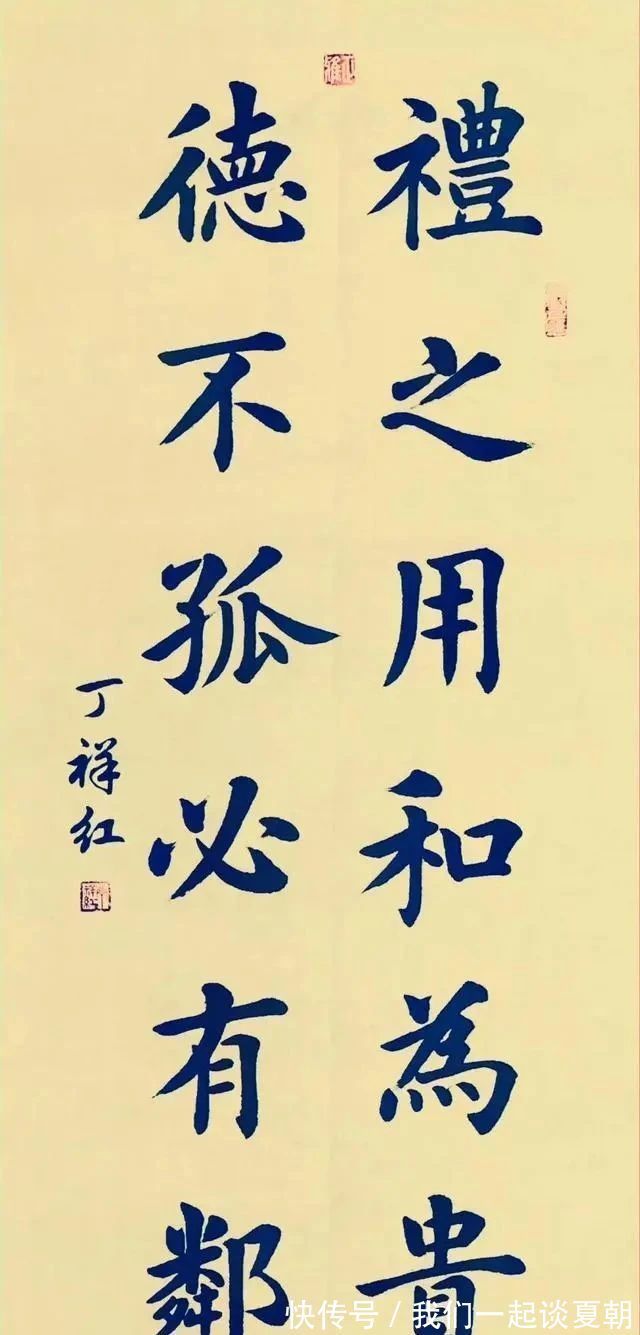 禮之用和為貴
德不孤必有鄰
丁祥红
快传号/我们一起谈夏朝